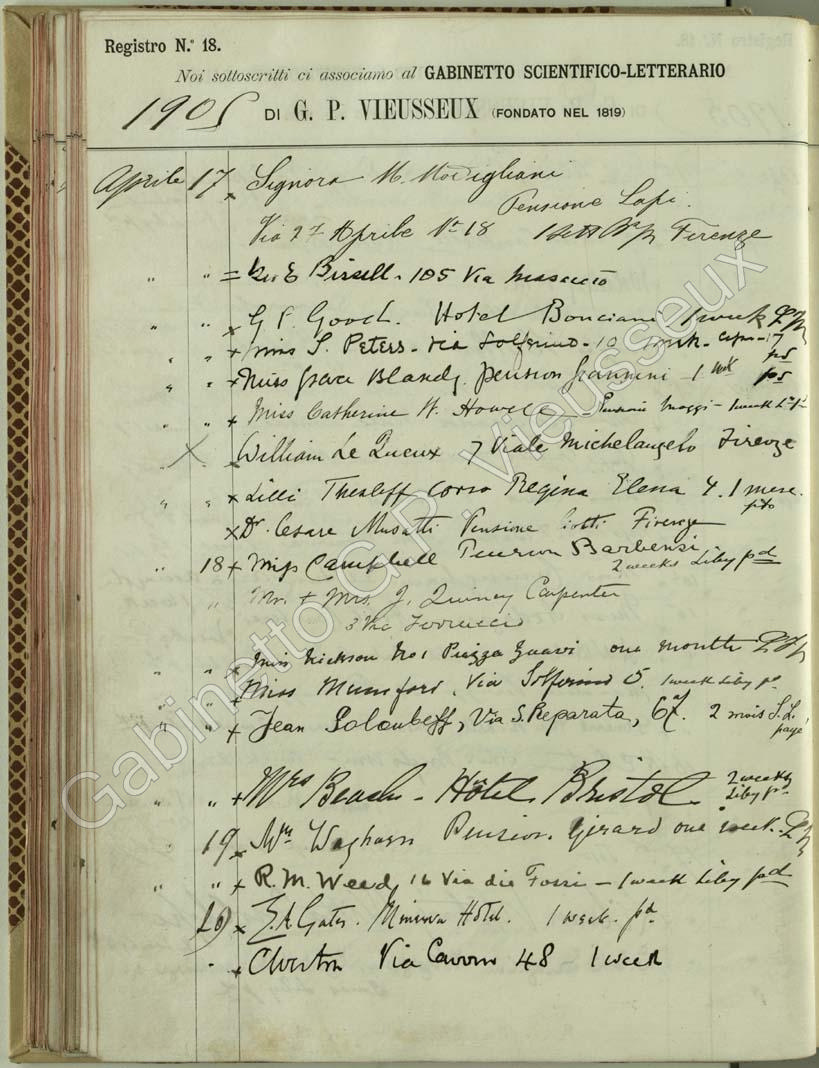 Registro N.º 18.
Noi sottoscritti ci associamo al GABINETTO SCIENTIFICO-LETTERARIO
1905 DI G. P. VIEUSSEUX (FONDATO NEL 1819)
Aprile 17 x Signora M. Modigliani
Pensione Lapi.
Via 27 Aprile N° 18 Firenze
" " = E Bissell - 105 Via Masaccio
" " x G P. Gooch. Hotel Bonciani 1 week
" " + Miss S. Peters - Via Solferino - 10 17
pd
" " + Miss Grace Blandy. pension Giannini - 1 wk pd
" + Miss Catherine W. Howell - Pensione Maggi - 1 week
" X x William Le Queux 7 Viale Michelangelo Firenze
" " x Lilli Thesleff Corso Regina Elena 4. 1 mese.
x Dr. Cesare Musatti Pensione Firenze
" 18 + Miss Campbell Pension Barbensi
2 weeks Liby pd
" Mr. + Mrs. J. Quincy Carpenter
3 Via Ferruccio
" " x Miss No 1 Piazza one month
" " x Miss Mumford, Via Solferino 5. 1 week Liby pd
" " + Jean Via S. Reparata, 67. 2 mois S.L.
payé
" " + Mrs Beach - Hôtel Bristol 2 weeks
Liby pd
19 x Mrs Waghorn Pension. Girard one week.
" " + R. M. Weed, 16 Via dei Fossi - 1 week Liby pd
20 x E. A. Gates. Minerva Hôtel. 1 week. pd
" + Via Cavour 48 1 week
Gabinetto G.P. Vieusseux